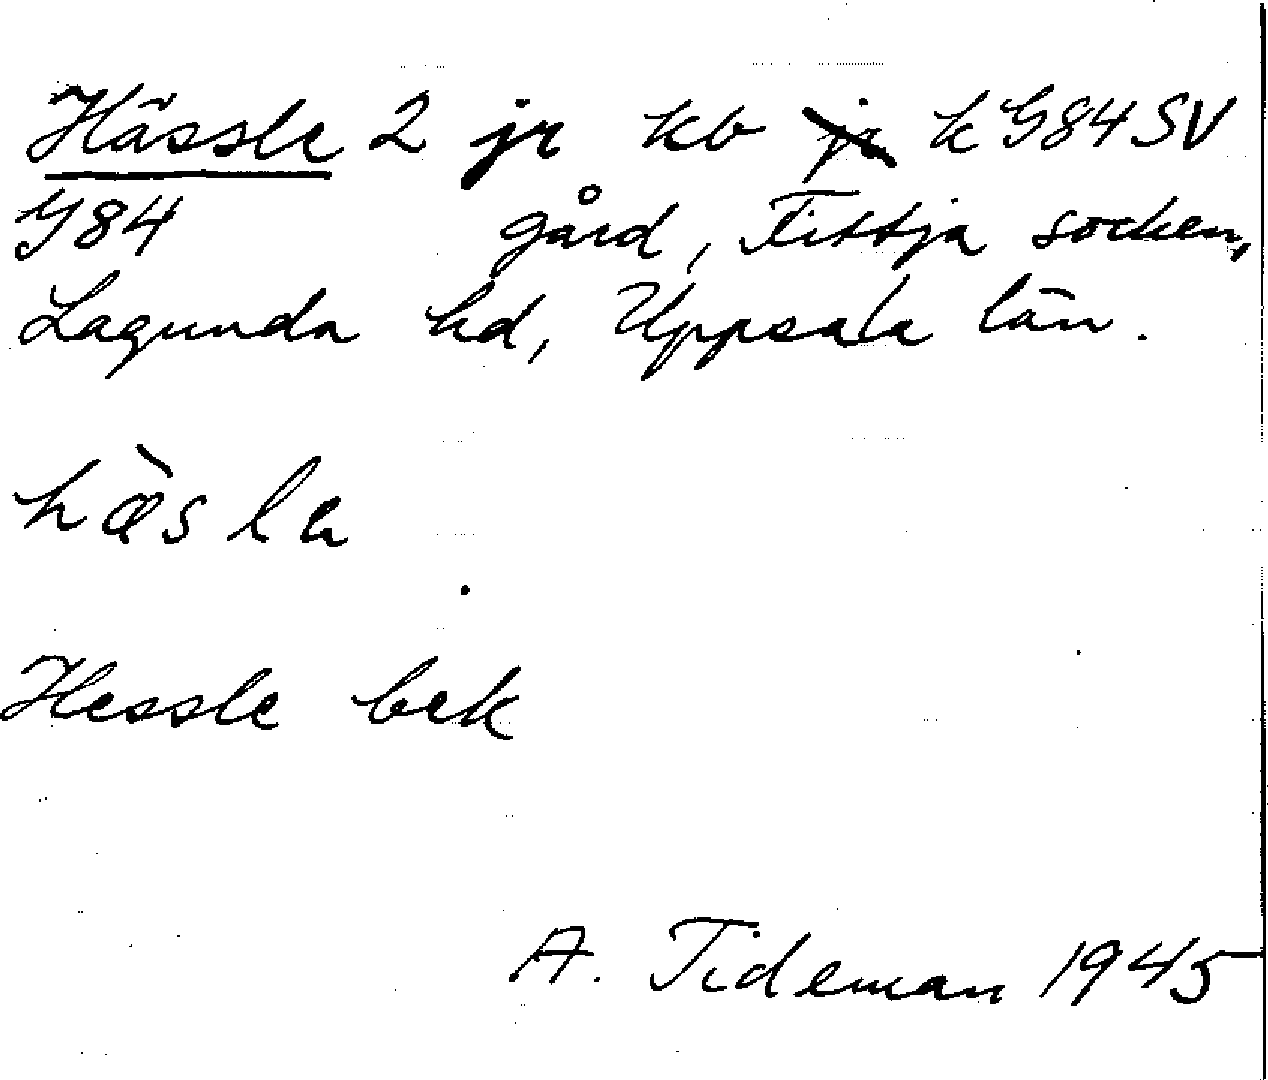 Hässle 2 jr kb k G84SV
G84 gård, Fittja socken,
Lagunda hd, Uppsala län.
hæ̀sla
Hessle bek
A. Tideman 1945